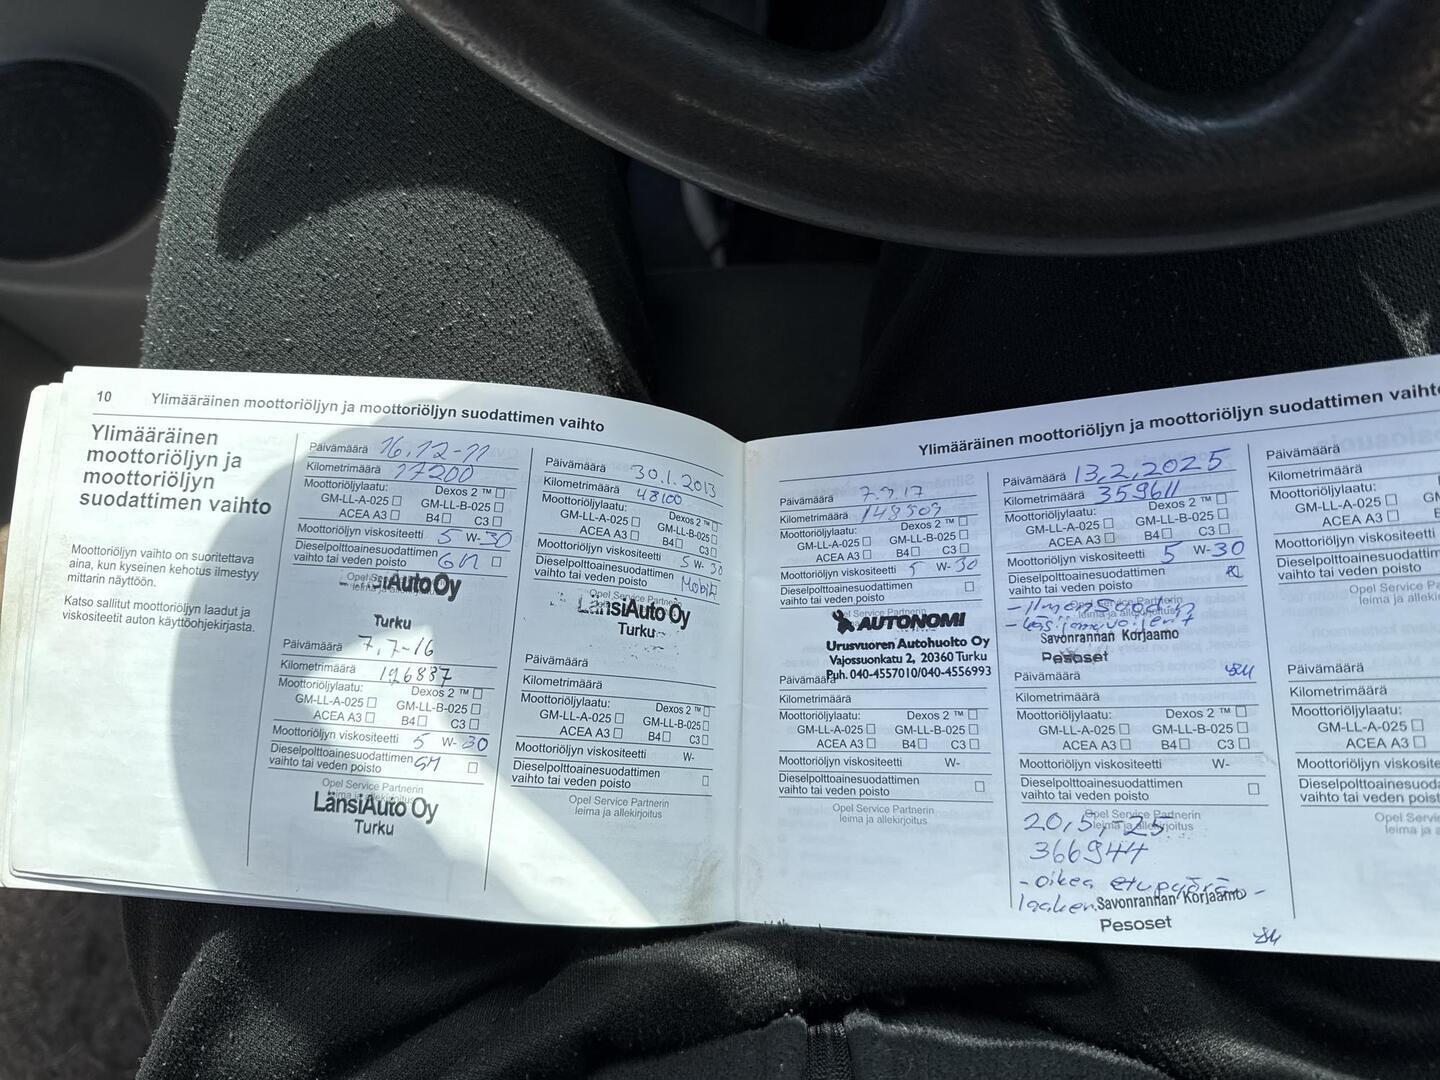 10 Ylimääräinen moottoriöljyn ja moottoriöljyn suodattimen vaihto
Ylimääräinen
moottoriöljyn ja
moottoriöljyn
suodattimen vaihto
Moottoriöljyn vaihto on suoritettava
aina, kun kyseinen kehotus ilmestyy
mittarin näyttöön.
Katso sallitut moottoriöljyn laadut ja
viskositeetit auton käyttöohjekirjasta.
Päivämäärä 16.12-11
Kilometrimäärä 17200
Moottoriöljylaatu: Dexos 2 ™
GM-LL-A-025 GM-LL-B-025
ACEA A3 B4 C3
Moottoriöljyn viskositeetti 5 W-30
Dieselpolttoainesuodattimen
vaihto tai veden poisto GM
LänsiAuto Oy
Turku
Päivämäärä 7.7-16
Kilometrimäärä 126837
Moottoriöljylaatu: Dexos 2 ™
GM-LL-A-025 GM-LL-B-025
ACEA A3 B4 C3
Moottoriöljyn viskositeetti 5 W-30
Dieselpolttoainesuodattimen
vaihto tai veden poisto GM
Opel Service Partnerin
leima ja allekirjoitus
LänsiAuto Oy
Turku
Päivämäärä 30.1.2013
Kilometrimäärä 48100
Moottoriöljylaatu: Dexos 2 ™
GM-LL-A-025 GM-LL-B-025
ACEA A3 B4 C3
Moottoriöljyn viskositeetti 5 W-30
Dieselpolttoainesuodattimen
vaihto tai veden poisto Mobil
Opel Service Partnerin
LänsiAuto Oy
Turku
Päivämäärä
Kilometrimäärä
Moottoriöljylaatu: Dexos 2 ™
GM-LL-A-025 GM-LL-B-025
ACEA A3 B4 C3
Moottoriöljyn viskositeetti W-
Dieselpolttoainesuodattimen
vaihto tai veden poisto
Opel Service Partnerin
leima ja allekirjoitus
Ylimääräinen moottoriöljyn ja moottoriöljyn suodattimen vaihto
Päivämäärä 7.9.17
Kilometrimäärä 148509
Moottoriöljylaatu: Dexos 2 ™
GM-LL-A-025 GM-LL-B-025
ACEA A3 B4 C3
Moottoriöljyn viskositeetti 5 W-30
Dieselpolttoainesuodattimen
vaihto tai veden poisto
Opel Service Partnerin
AUTONOMI
Urusvuoren Autohuolto Oy
Vajossuonkatu 2, 20360 Turku
Puh. 040-4557010/040-4556993
Päivämäärä
Kilometrimäärä
Moottoriöljylaatu: Dexos 2 ™
GM-LL-A-025 GM-LL-B-025
ACEA A3 B4 C3
Moottoriöljyn viskositeetti W-
Dieselpolttoainesuodattimen
vaihto tai veden poisto
Opel Service Partnerin
leima ja allekirjoitus
Päivämäärä 13.2.2025
Kilometrimäärä 359611
Moottoriöljylaatu: Dexos 2 ™
GM-LL-A-025 GM-LL-B-025
ACEA A3 B4 C3
Moottoriöljyn viskositeetti 5 W-30
Dieselpolttoainesuodattimen
vaihto tai veden poisto
Savonrannan Korjaamo
Pesoset
Päivämäärä
Kilometrimäärä
Moottoriöljylaatu: Dexos 2 ™
GM-LL-A-025 GM-LL-B-025
ACEA A3 B4 C3
Moottoriöljyn viskositeetti W-
Dieselpolttoainesuodattimen
vaihto tai veden poisto
Opel Service Partnerin
leima ja allekirjoitus
20.5.-25
366944
- oikea etupyörän-
laakeri
Savonrannan Korjaamo
Pesoset
Päivämäärä
Kilometrimäärä
Moottoriöljylaatu:
GM-LL-A-025
ACEA A3
Moottoriöljyn
Dieselpolttoainesuodattimen
vaihto tai veden
Opel Service
leima ja
Päivämäärä
Kilometrimäärä
Moottoriöljylaatu:
GM-LL-A-025
ACEA A3
Moottoriöljyn
vaihto tai veden